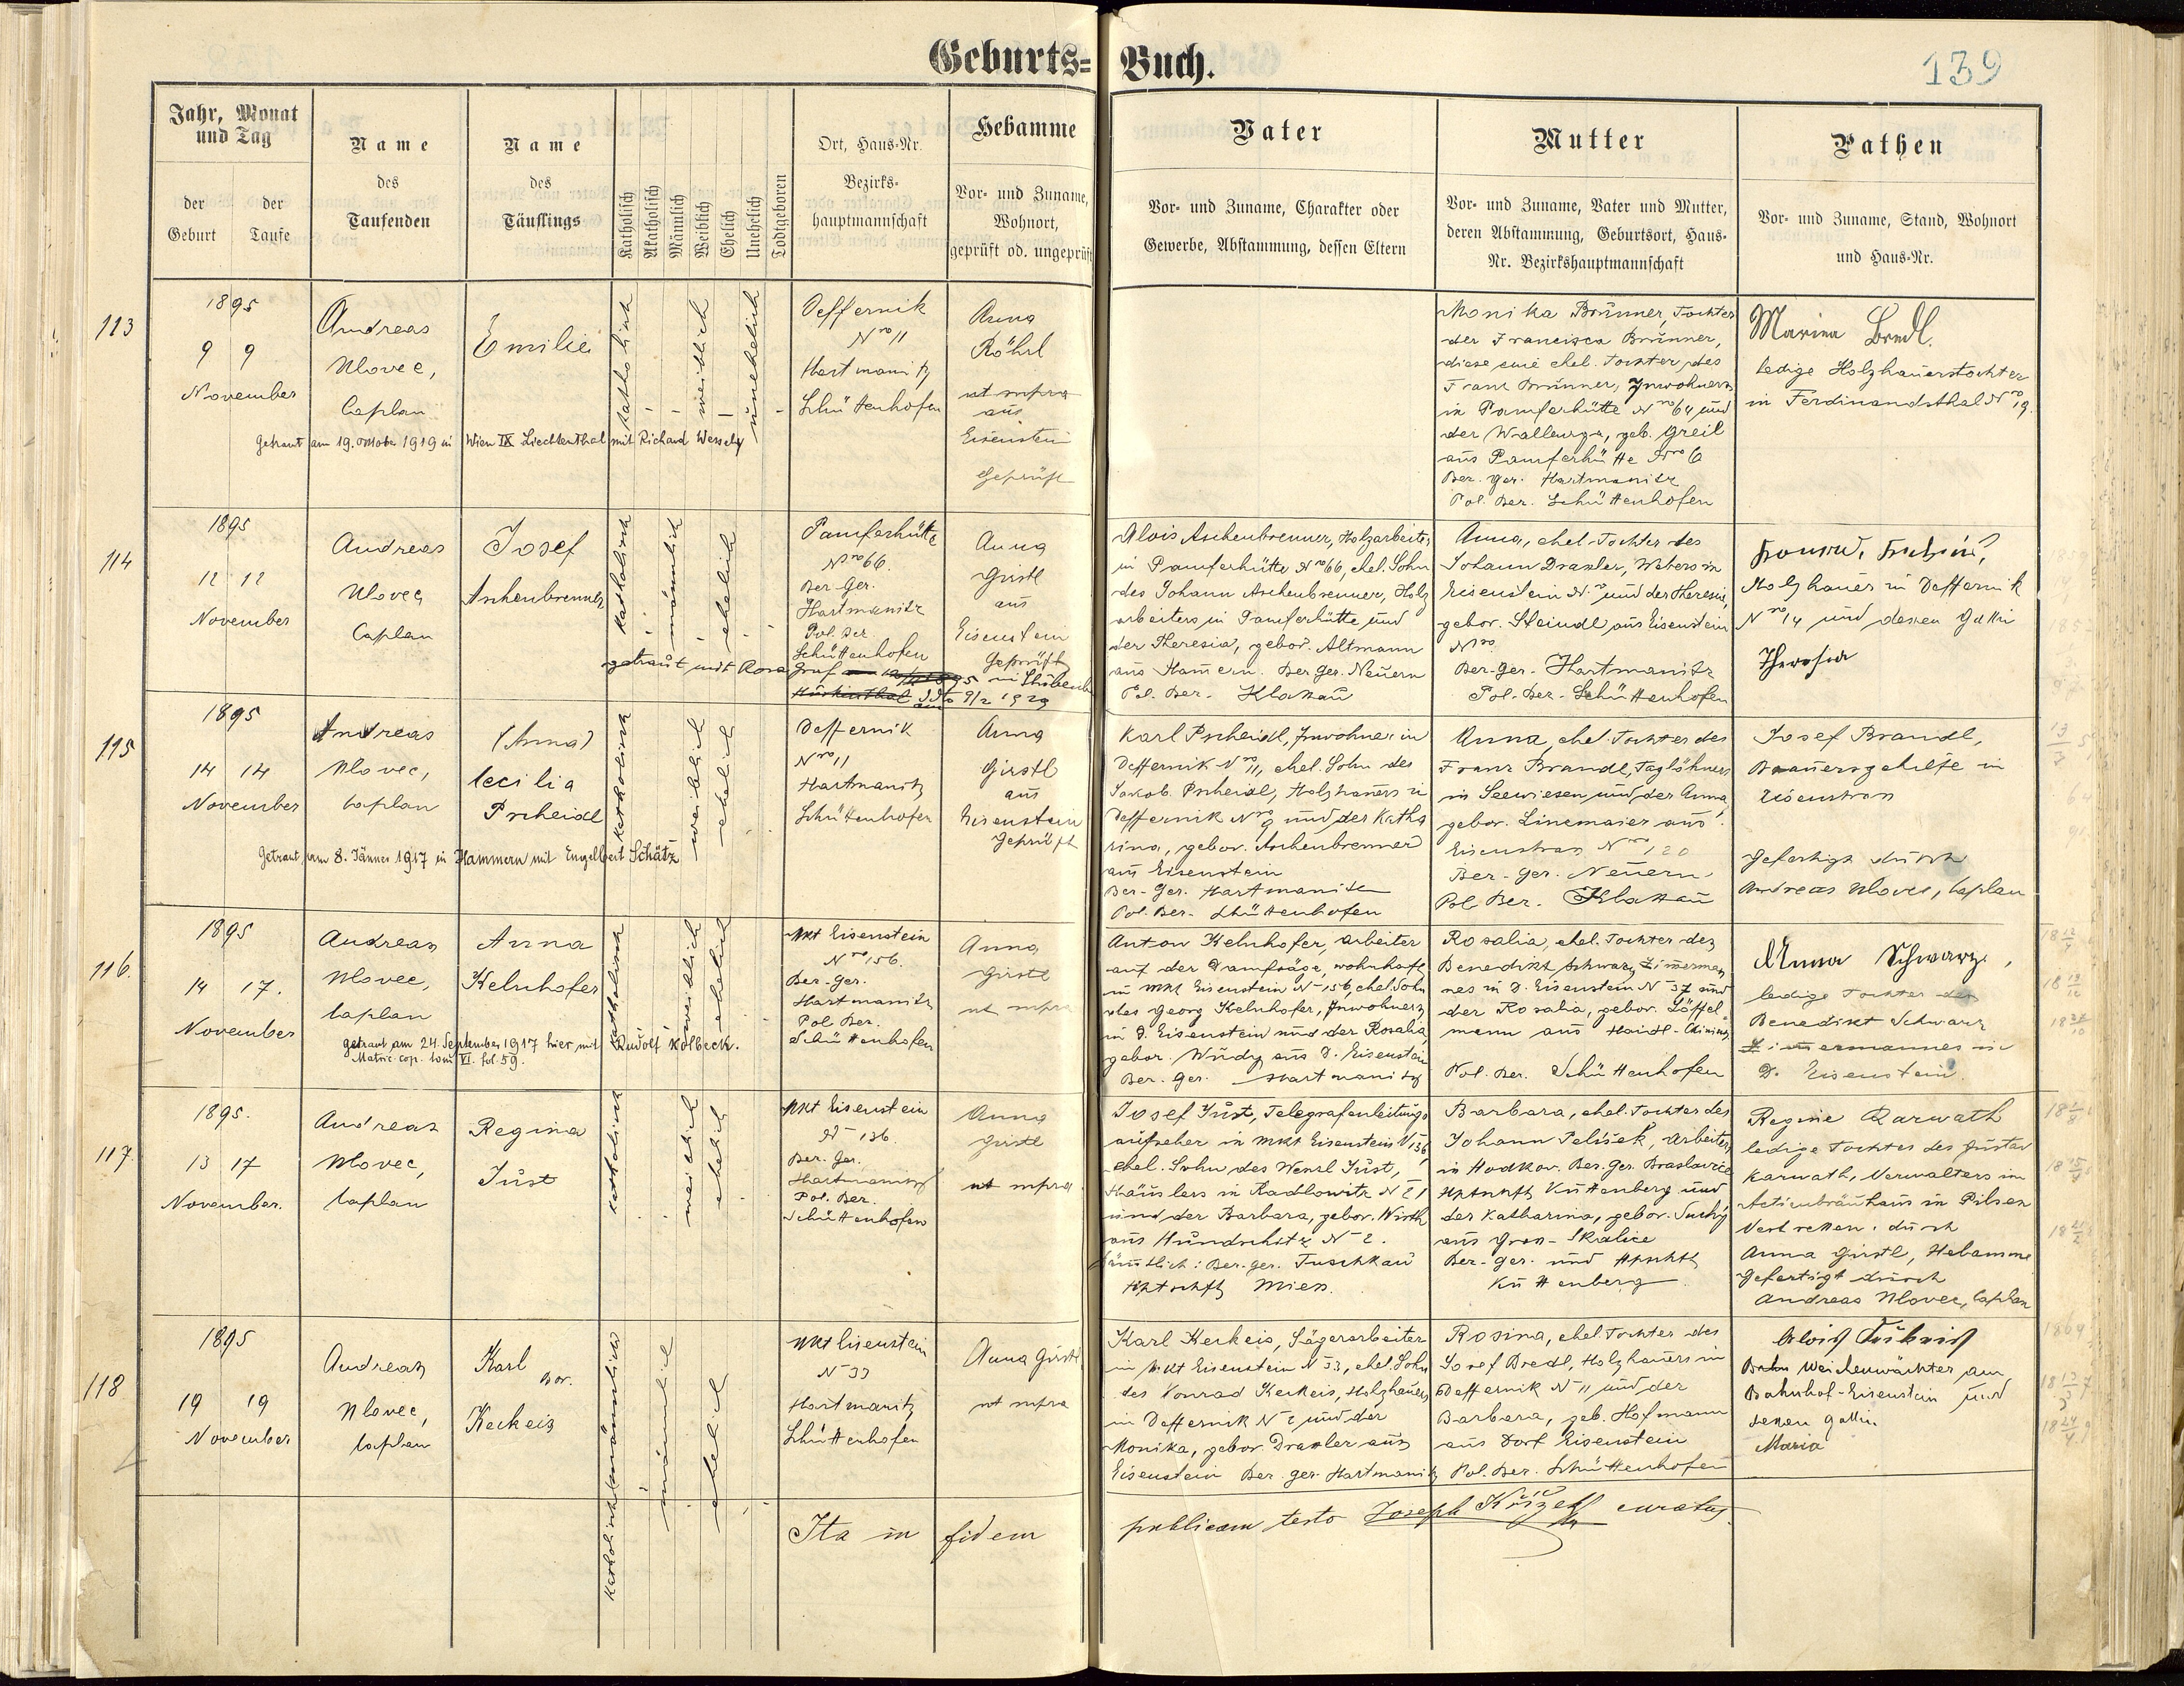 Geburts=Buch.
139
Jahr, Monat
und Tag
der
Geburt
der
Taufe
Name
des
Taufenden
Name
des
Täuflings
Katholisch
Akatholisch
Männlich
Weiblich
Ehelich
Unehelich
Todtgeboren
Ort, Haus-Nr.
Bezirks-
hauptmannschaft
Hebamme
Vor- und Zuname,
Wohnort,
geprüft od. ungeprüft
Vater
Vor- und Zuname, Charakter oder
Gewerbe, Abstammung, dessen Eltern
Mutter
Vor- und Zuname, Vater und Mutter,
deren Abstammung, Geburtsort, Haus-
Nr. Bezirkshauptmannschaft
Pathen
Vor- und Zuname, Stand, Wohnort
und Haus-Nr.
113
1895
9 9
November
Andreas
Ulovec,
Caplan
Emilie
katholisch
weiblich
unehelich
Deffernik
Nro 11
Hartmanitz
Schüttenhofen
Anna
Röhrl
ut supra
aus
Eisenstein
Geprüft
Getraut am 19. Oktober 1919 in Wien IX Liechtenthal mit Richard Wessely
Monika Brunner, Tochter
der Francisca Brunner,
diese eine ehel. Tochter des
Franz Brunner, Inwohners
in Pamferhütte Nro 64 und
der Wallburga, geb. Greil
aus Pamferhütte Nro 6
Bez. Ger. Hartmanitz
Pol. Bez. Schüttenhofen
Marina Bredl.
ledige Holzhauerstochter
in Ferdinandsthal Nro 19.
114
1895
12 12
November
Andreas
Ulovec,
Caplan
Josef
Aschenbrenner
katholisch
männlich
ehelich
Pamferhütte
Nro 66.
Bez-Ger.
Hartmanitz
Pol. Bez
Schüttenhofen
Anna
Girstl
aus
Eisenstein
Geprüft
getraut mit Rosa Graf
9/2 1929
Alois Aschenbrenner, Holzarbeiter
in Pamferhütte Nro 66, ehel. Sohn
des Johann Aschenbrenner, Holz
arbeiters in Pamferhütte und
der Theresia, gebor. Altmann
aus Hamern. Bez Ger. Neuern
Pol. Bez. Klattau
Anna, ehel. Tochter des
Johann Draxler, Webers in
Eisenstein Nro und der Theresia,
gebor. Steindl aus Eisenstein
Nro
Bez-Ger. Hartmanitz
Pol-Bez. Schüttenhofen
Holzhauer in Deffernik
Nro 14 und dessen Gattin
Theresia
115
1895
14 14
November
Andreas
Ulovec,
Caplan
(Anna)
Cecilia
Pscheidl
katholisch
weiblich
ehelich
Deffernik
Nro 11
Hartmanitz
Schüttenhofen
Anna
Girstl
aus
Eisenstein
Geprüft
Getraut am 8. Jänner 1917 in Hammern mit Engelbert Schätz
Karl Pscheidl, Inwohner in
Deffernik Nro 11, ehel. Sohn des
Jakob Pscheidl, Holzhauers in
Deffernik Nro 9 und der Katha
rina, gebor. Aschenbrenner
aus Eisenstein
Bez-Ger. Hartmanitz
Pol. Bez. Schüttenhofen
Anna, ehel. Tochter des
Franz Brandl, Taglöhners
in Seewiesen und der Anna,
gebor. Linsmaier aus
Eisenstrass Nro 120
Bez-Ger. Neuern
Pol Bez. Klattau
Josef Brandl,
Brauersgehilfe in
Eisenstrass
Gefertigt durch
Andreas Ulovec, Caplan
116.
1895
14 17.
November
Andreas
Ulovec,
Caplan
Anna
Kelnhofer
katholisch
weiblich
ehelich
Mkt Eisenstein
Nro 156.
Bez-Ger.
Hartmanitz
Pol Bez.
Schüttenhofen
Anna
Girstl
ut supra
getraut am 24. September 1917 hier mit Rudolf Kolbeck.
Matric. cop. tom VI. fol. 59.
Anton Kelnhofer, Arbeiter
auf der Dampfsäge, wohnhaft
in Mkt Eisenstein N 156, ehel. Sohn
des Georg Kelnhofer, Inwohners
in D. Eisenstein und der Rosalia,
gebor. Wudy aus D. Eisenstein
Bez. Ger. Hartmanitz
Rosalia, ehel. Tochter des
Benedikt Schwarz, Zimmerman
nes in D. Eisenstein N 37 und
der Rosalia, gebor. Löffel-
mann aus Haidl
Pol. Bez. Schüttenhofen
Anna Schwarz,
ledige Tochter des
Benedikt Schwarz
Zimmermannes in
D. Eisenstein.
117.
1895.
13 17
November.
Andreas
Ulovec,
Caplan
Regina
Just
katholisch
weiblich
ehelich
Mkt Eisenstein
N 136
Bez-Ger.
Hartmanitz
Pol. Bez.
Schüttenhofen
Anna
Girstl
ut supra
Josef Just, Telegrafenleitungs
aufseher in Mkt Eisenstein N 136
ehel. Sohn des Wenzl Just,
Häuslers in Radlowitz N 21
und der Barbara, gebor. Wirth
aus Hundschitz N 2.
sämtlich: Bez. Ger. Tuschkau
Hptschft Mies.
Barbara, ehel. Tochter des
Johann Pelíšek, Arbeiters
in Hodkov. Bez. Ger.
Hptschft Kuttenberg und
der Katharina, gebor. Suchý
aus Gross-Skalice
Bez-Ger. und Hptschft
Kuttenberg
Regine Karwath
ledige Tochter des Gustav
Karwath, Verwalters im
Actienbräuhaus in Pilsen
Vertreten durch
Anna Girstl, Hebamme
Gefertigt durch
Andreas Ulovec, Caplan
118
1895
19 19
November
Andreas
Ulovec,
Caplan
Karl
Bor.
Keckeis
katholisch
männlich
ehelich
Mkt Eisenstein
N 33
Hartmanitz
Schüttenhofen
Anna Girstl
ut supra
Karl Keckeis, Sägerarbeiter
in Mkt Eisenstein N 33, ehel. Sohn
des Konrad Keckeis, Holzhauers
in Deffernik N 2 und der
Monika, gebor. Draxler aus
Eisenstein Bez. Ger. Hartmanitz
Rosina, ehel. Tochter des
Josef Bredl, Holzhauers in
Deffernik N 11 und der
Barbara, geb. Hofmann
aus Dorf Eisenstein
Pol. Bez. Schüttenhofen
Alois
Weichenwächter am
Bahnhof-Eisenstein und
dessen Gattin
Maria
Ita in fidem publicam testo Joseph curatus